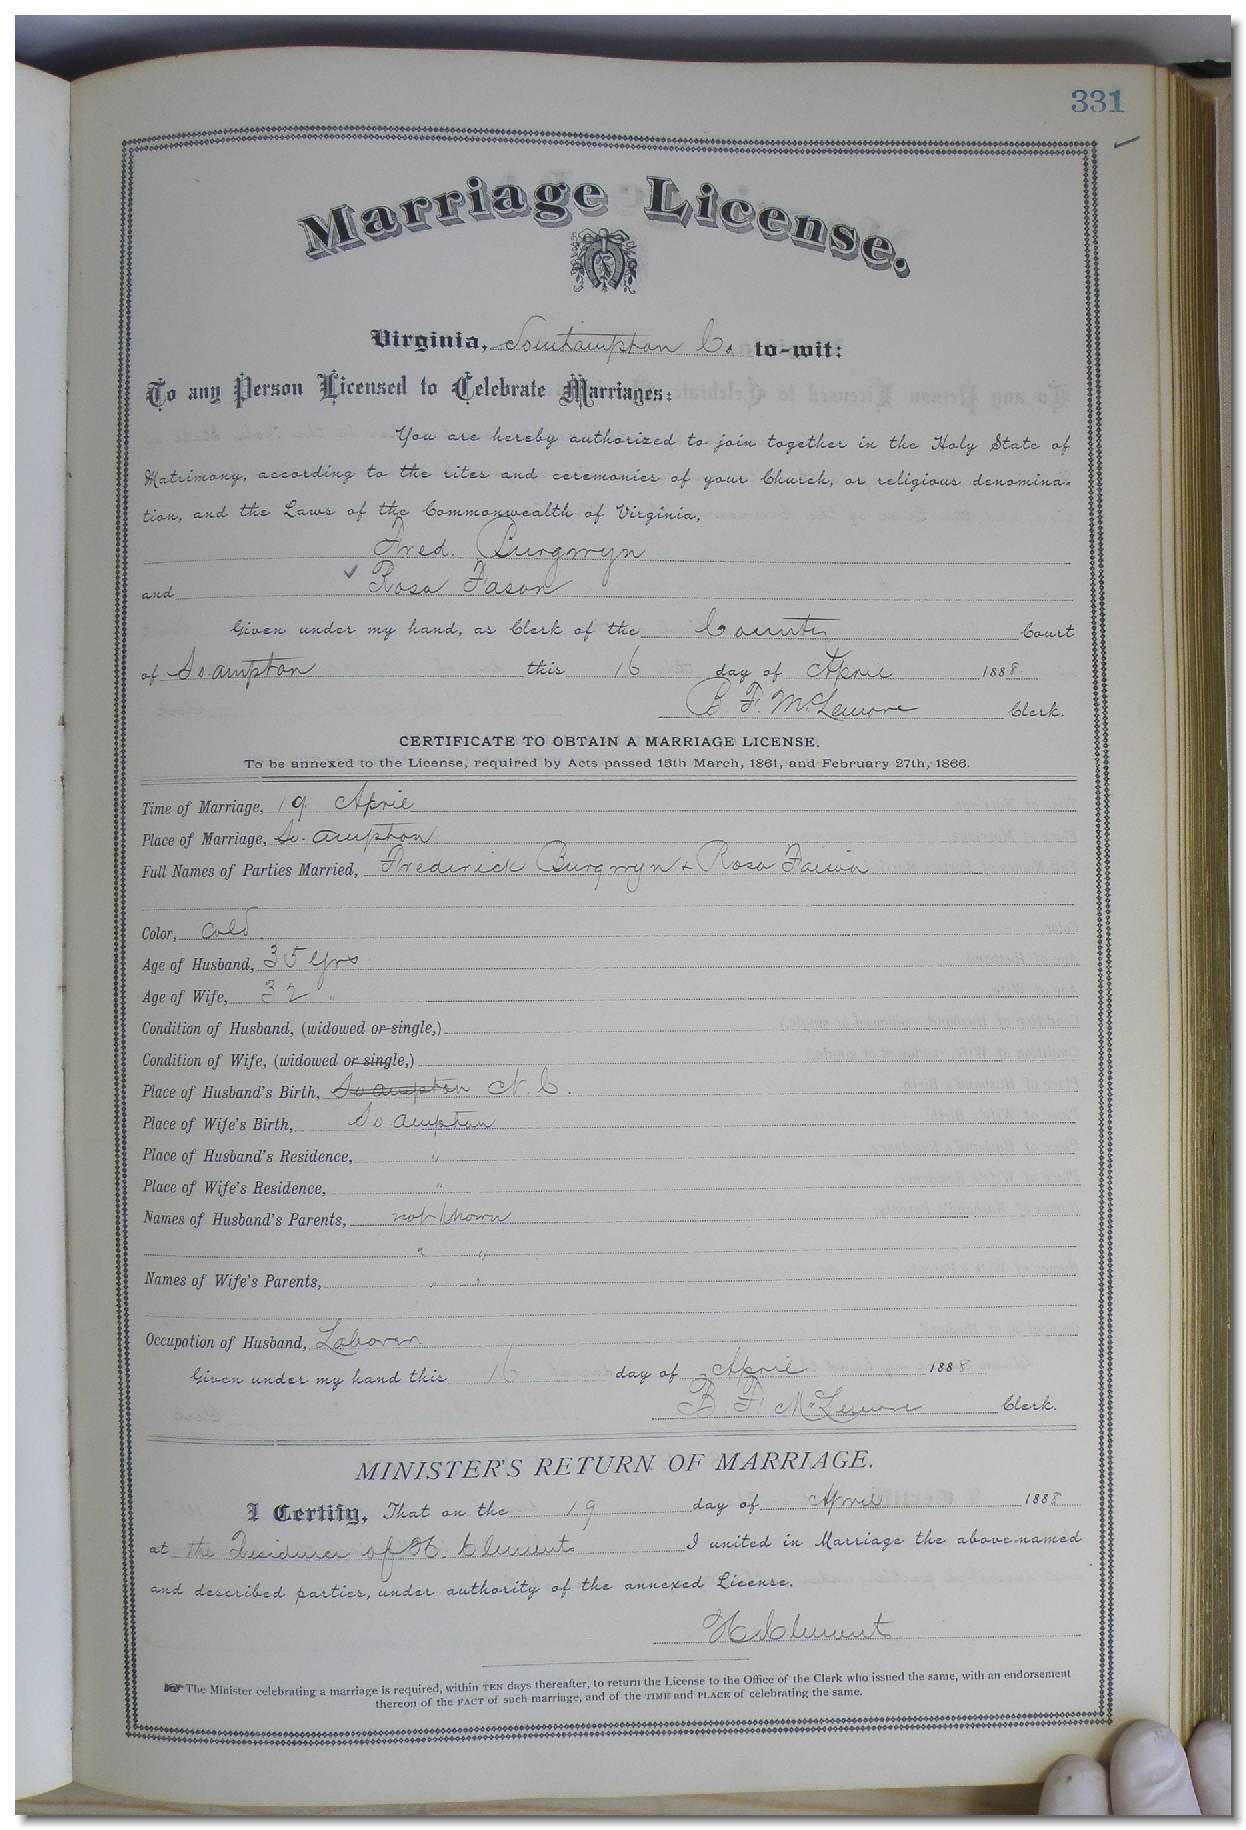 331
Marriage License.
Virginia, Southampton Co. to-wit:
To any Person Licensed to Celebrate Marriages:
You are hereby authorized to join together in the Holy State of
Matrimony, according to the rites and ceremonies of your Church, or religious denomina-
tion, and the Laws of the Commonwealth of Virginia,
Fred. Burgwyn
and Rosa Fason
Given under my hand, as Clerk of the County Court
of So.ampton this 16 day of April 1888
B. F. McLemore Clerk.
CERTIFICATE TO OBTAIN A MARRIAGE LICENSE.
To be annexed to the License, required by Acts passed 18th March, 1861, and February 27th, 1866.
Time of Marriage, 19 April
Place of Marriage, So. ampton
Full Names of Parties Married, Frederick Burgwyn & Rosa
Color, cold
Age of Husband, 35 yrs
Age of Wife, 32 "
Condition of Husband, (widowed or single,)
Condition of Wife, (widowed or single,)
Place of Husband's Birth, So ampton N. C.
Place of Wife's Birth, So ampton
Place of Husband's Residence, "
Place of Wife's Residence, "
Names of Husband's Parents, not known
" "
Names of Wife's Parents, " "
Occupation of Husband, Laborer
Given under my hand this 16 day of April 1888
B. F. McLemore Clerk.
MINISTER'S RETURN OF MARRIAGE.
I Certify, That on the 19 day of April 1888
at the Residence of H. Clements I united in Marriage the above-named
and described parties, under authority of the annexed License.
H. Clements
The Minister celebrating a marriage is required, within TEN days thereafter, to return the License to the Office of the Clerk who issued the same, with an endorsement
thereon of the FACT of such marriage, and of the TIME and PLACE of celebrating the same.